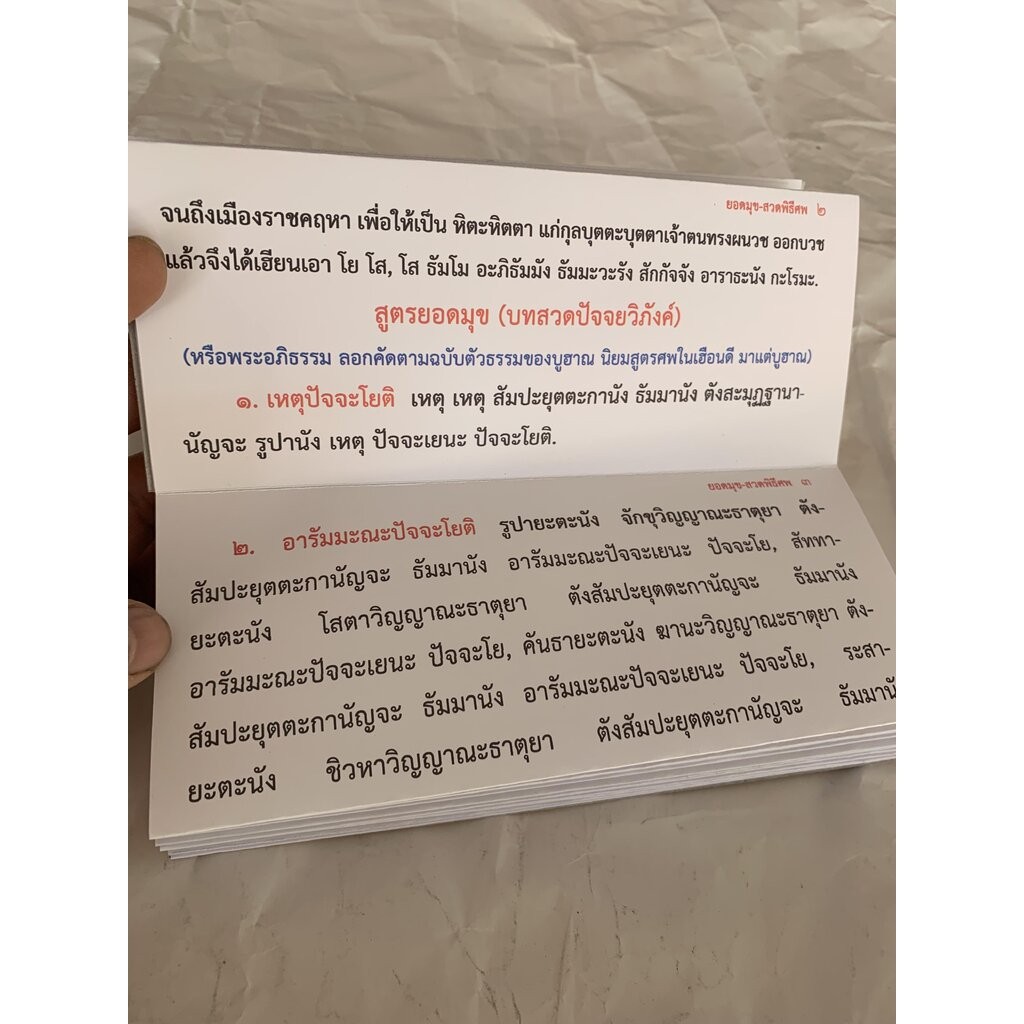 ยอดมุข-สวดพิธีศพ ๒
จนถึงเมืองราชคฤหา เพื่อให้เป็น หิตะหิตตา แก่กุลบุตตะบุตตาเจ้าตนทรงผนวช ออกบวช
แล้วจึงได้เฮียนเอา โย โส, โส ธัมโม อะภิธัมมัง ธัมมะวะรัง สักกัจจัง อาราธะนัง กะโรมะ.
สูตรยอดมุข (บทสวดปัจจยวิภังค์)
(หรือพระอภิธรรม ลอกคัดตามฉบับตัวธรรมของบูฮาณ นิยมสูตรศพในเฮือนดี มาแต่บูฮาณ)
๑. เหตุปัจจะโยติ เหตุ เหตุ สัมปะยุตตะกานัง ธัมมานัง ตังสะมุฏฐานา-
นัญจะ รูปานัง เหตุ ปัจจะเยนะ ปัจจะโยติ.
ยอดมุข-สวดพิธีศพ ๓
๒. อารัมมะณะปัจจะโยติ รูปายะตะนัง จักขุวิญญาณะธาตุยา ตัง-
สัมปะยุตตะกานัญจะ ธัมมานัง อารัมมะณะปัจจะเยนะ ปัจจะโย, สัททา-
ยะตะนัง โสตาวิญญาณะธาตุยา ตังสัมปะยุตตะกานัญจะ ธัมมานัง
อารัมมะณะปัจจะเยนะ ปัจจะโย, คันธายะตะนัง ฆานะวิญญาณะธาตุยา ตัง-
สัมปะยุตตะกานัญจะ ธัมมานัง อารัมมะณะปัจจะเยนะ ปัจจะโย, ระสา-
ยะตะนัง ชิวหาวิญญาณะธาตุยา ตังสัมปะยุตตะกานัญจะ